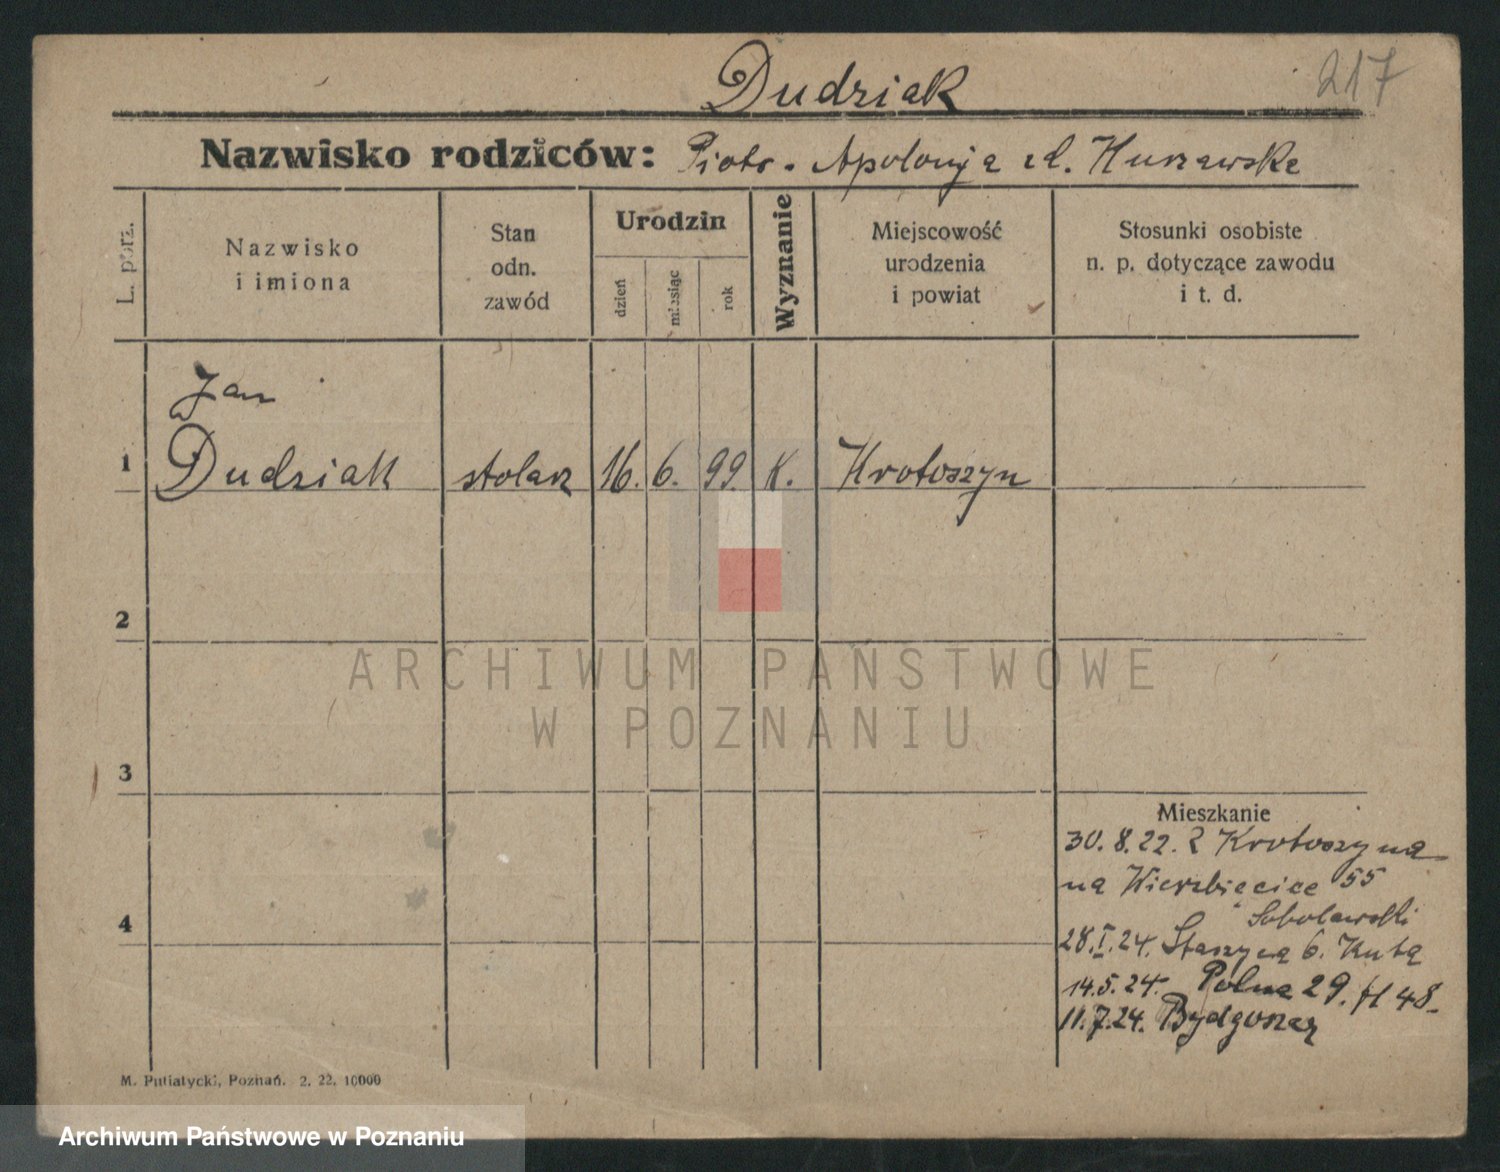 217
Dudziak
Nazwisko rodziców: Piotr - Apolonja zd.
L. porz.
Nazwisko
i imiona
Stan
odn.
zawód
Urodzin
dzień
miesiąc
rok
Wyznanie
Miejscowość
urodzenia
i powiat
Stosunki osobiste
n. p. dotyczące zawodu
i t. d.
Jan
1 Dudziak stolarz 16. 6. 99. K. Krotoszyn
2
3
4
Mieszkanie
30.8.22. z Krotoszyna
na Wierzbięcice 55
Sobolewski
28.I.24. Staszyca 6.
14.5.24. Polna 29.
11.7.24. Bydgoszcz
M. Putiatycki, Poznań. 2. 22. 10000
ARCHIWUM PAŃSTWOWE
W POZNANIU
Archiwum Państwowe w Poznaniu